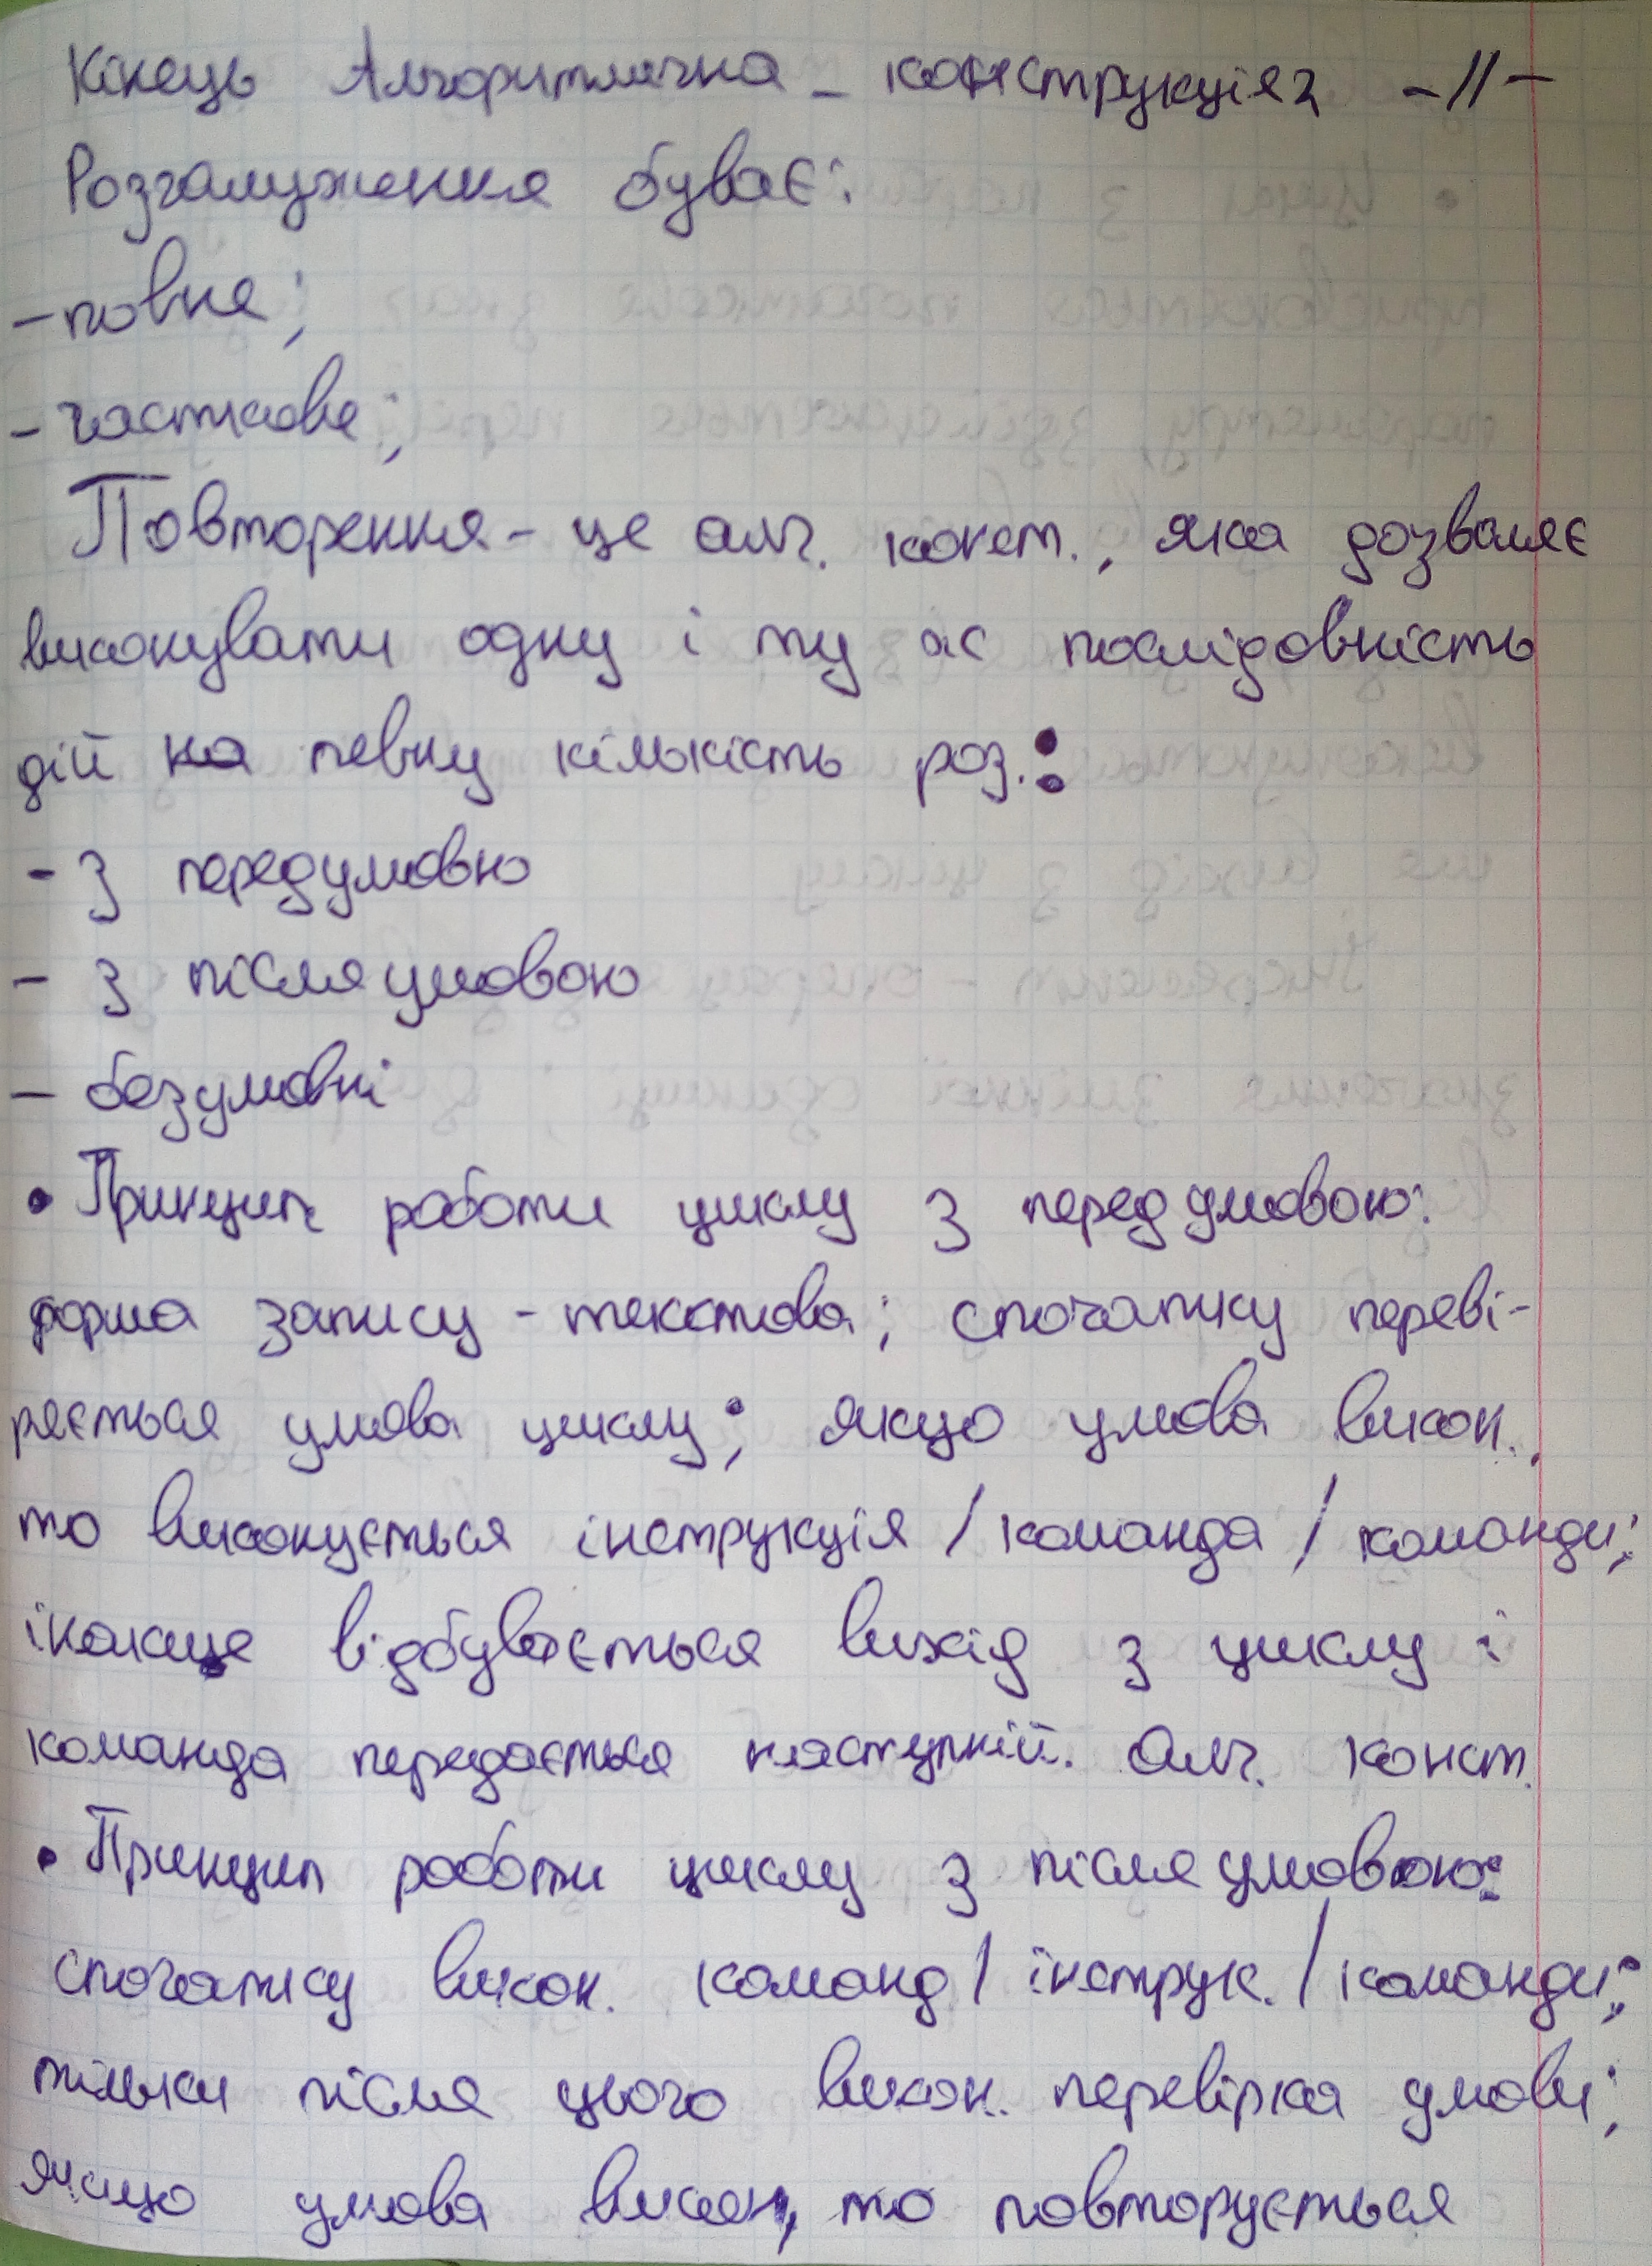 Кінець Алгоритмічна – конструкція 2 –//–
Розгалуження буває:
– повне;
– часткове;
Повторення – це алг. конст., яка дозволяє
виконувати одну і ту ж послідовність
дій на певну кількість роз.:
– З передумовю
– З післяумовою
– безумовні
• Принцип роботи циклу з передумовою:
форма запису – текстова; спочатку переві-
ряється умова циклу; якщо умова викон.,
то виконується інструкція / команда / команди;
інакше відбувається вихід з циклу і
команда передається наступній. алг. конст.
• Принцип роботи циклу з післяумовою:
спочатку викон. команд / інструк. / команди;
тільки після цього викон. перевірка умови;
якщо умова викон, то повторується